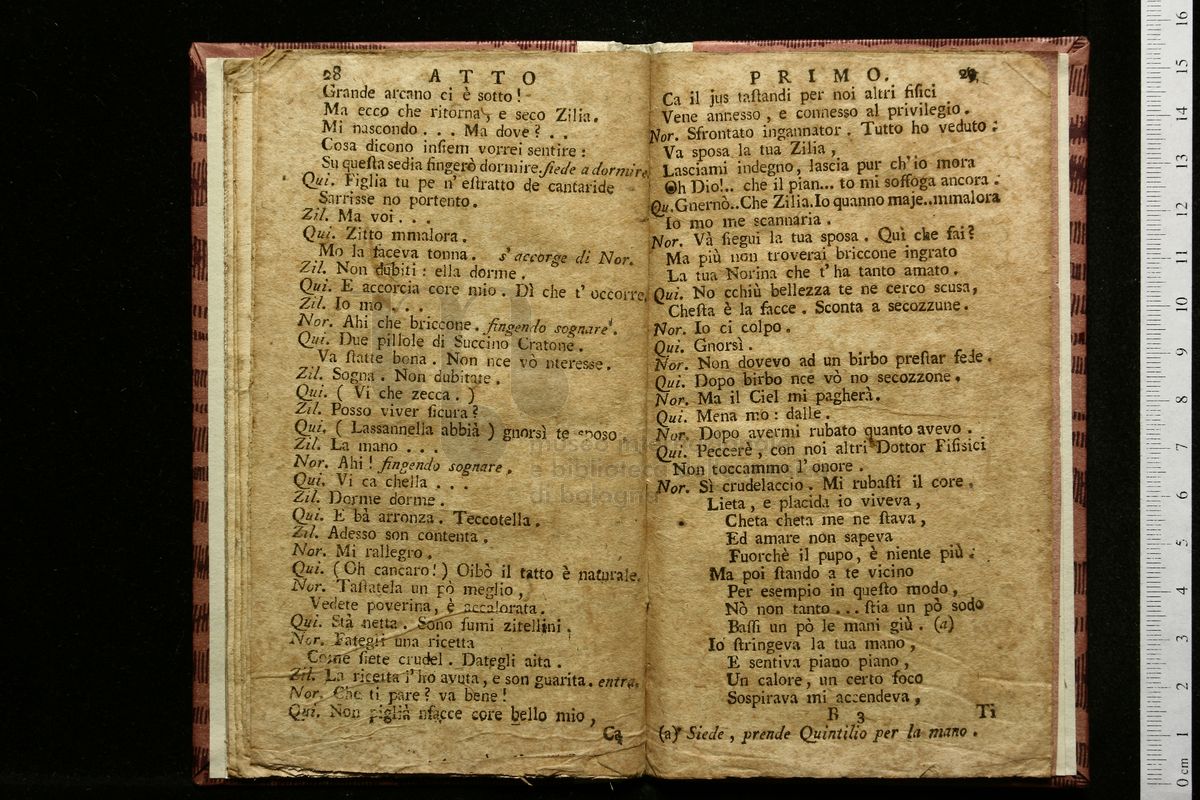 28 ATTO
Grande arcano ci è sotto!
Ma ecco che ritorna, e seco Zilia.
Mi nascondo... Ma dove?..
Cosa dicono inſiem vorrei sentire:
Su queſta sedia fingerò dormire. ſiede a dormire.
Qui. Figlia tu pe n' eſtratto de cantaride
Sarrisse no portento.
Zil. Ma voi...
Qui. Zitto mmalora.
Mo la faceva tonna. s' accorge di Nor.
Zil. Non dubiti: ella dorme.
Qui. E accorcia core mio. Dì che t' occorre.
Zil. Io mo...
Nor. Ahi che briccone. fingendo sognare.
Qui. Due pillole di Succino Cratone.
Va ſtatte bona. Non nce vò nteresse.
Zil. Sogna. Non dubitate.
Qui. (Vi che zecca.)
Zil. Posso viver ſicura?
Qui. (Lassannella abbià) gnorsì te sposo
Zil. La mano...
Nor. Ahi! fingendo sognare.
Qui. Vi ca chella...
Zil. Dorme dorme.
Qui. E bà arronza. Teccotella.
Zil. Adesso son contenta.
Nor. Mi rallegro.
Qui. (Oh cancaro!) Oibò il tatto è naturale.
Nor. Taſtatela un pò meglio,
Vedete poverina, è accalorata.
Qui. Stà netta. Sono fumi zitellini.
Nor. Fategli una ricetta
Come ſiete crudel. Dategli aita.
Zil. La ricetta l'ho avuta, e son guarita. entra.
Nor. Che ti pare? va bene!
Qui. Non piglià nfacce core bello mio,
Ca
PRIMO. 29
Ca il jus taſtandi per noi altri fiſici
Vene annesso, e connesso al privilegio.
Nor. Sfrontato ingannator. Tutto ho veduto:
Va sposa la tua Zilia,
Lasciami indegno, lascia pur ch'io mora
Oh Dio!.. che il pian... to mi soffoga ancora.
Qu. Gnernò.. Che Zilia. Io quanno maje.. mmalora
Io mo me scannaria.
Nor. Và ſiegui la tua sposa. Quì che fai?
Ma più non troverai briccone ingrato
La tua Norina che t'ha tanto amato.
Qui. No cchiù bellezza te ne cerco scusa,
Cheſta è la facce. Sconta a secozzune.
Nor. Io ci colpo.
Qui. Gnorsì.
Nor. Non dovevo ad un birbo preſtar fede.
Qui. Dopo birbo nce vò no secozzone.
Nor. Ma il Ciel mi pagherà.
Qui. Mena mo: dalle.
Nor. Dopo avermi rubato quanto avevo.
Qui. Peccerè, con noi altri Dottor Fiſisici
Non toccammo l'onore.
Nor. Sì crudelaccio. Mi rubaſti il core.
Lieta, e placida io viveva,
Cheta cheta me ne ſtava,
Ed amare non sapeva
Fuorchè il pupo, è niente più:
Ma poi ſtando a te vicino
Per esempio in queſto modo,
Nò non tanto... ſtia un pò sodo
Baſſi un pò le mani giù. (a)
Io ſtringeva la tua mano,
E sentiva piano piano,
Un calore, un certo foco
Sospirava mi accendeva,
B 3 Ti
(a) Siede, prende Quintilio per la mano.